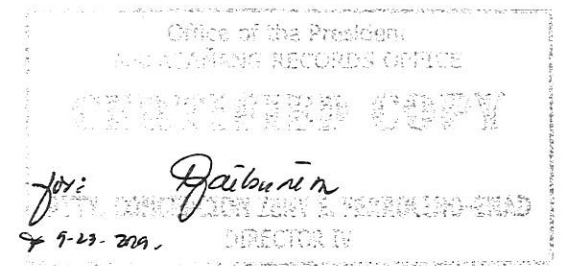 Office of the President
MALACAÑANG RECORDS OFFICE
CERTIFIED COPY
for:
ATTY. CONCEPCION ZENY E. FERROLINO-ENAD
DIRECTOR IV